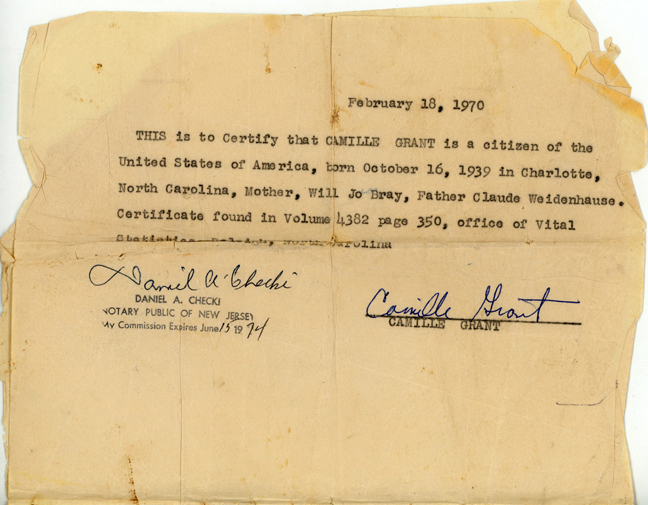 February 18, 1970
THIS is to Certify that CAMILLE GRANT is a citizen of the
United States of America, born October 16, 1939 in Charlotte,
North Carolina, Mother, Will Jo Bray, Father Claude Weidenhause.
Certificate found in Volume 4382 page 350, office of Vital
Statistics, Raleigh, North Carolina
Daniel A. Checki
DANIEL A. CHECKI
NOTARY PUBLIC OF NEW JERSEY
My Commission Expires June 15 1974
Camille Grant
CAMILLE GRANT